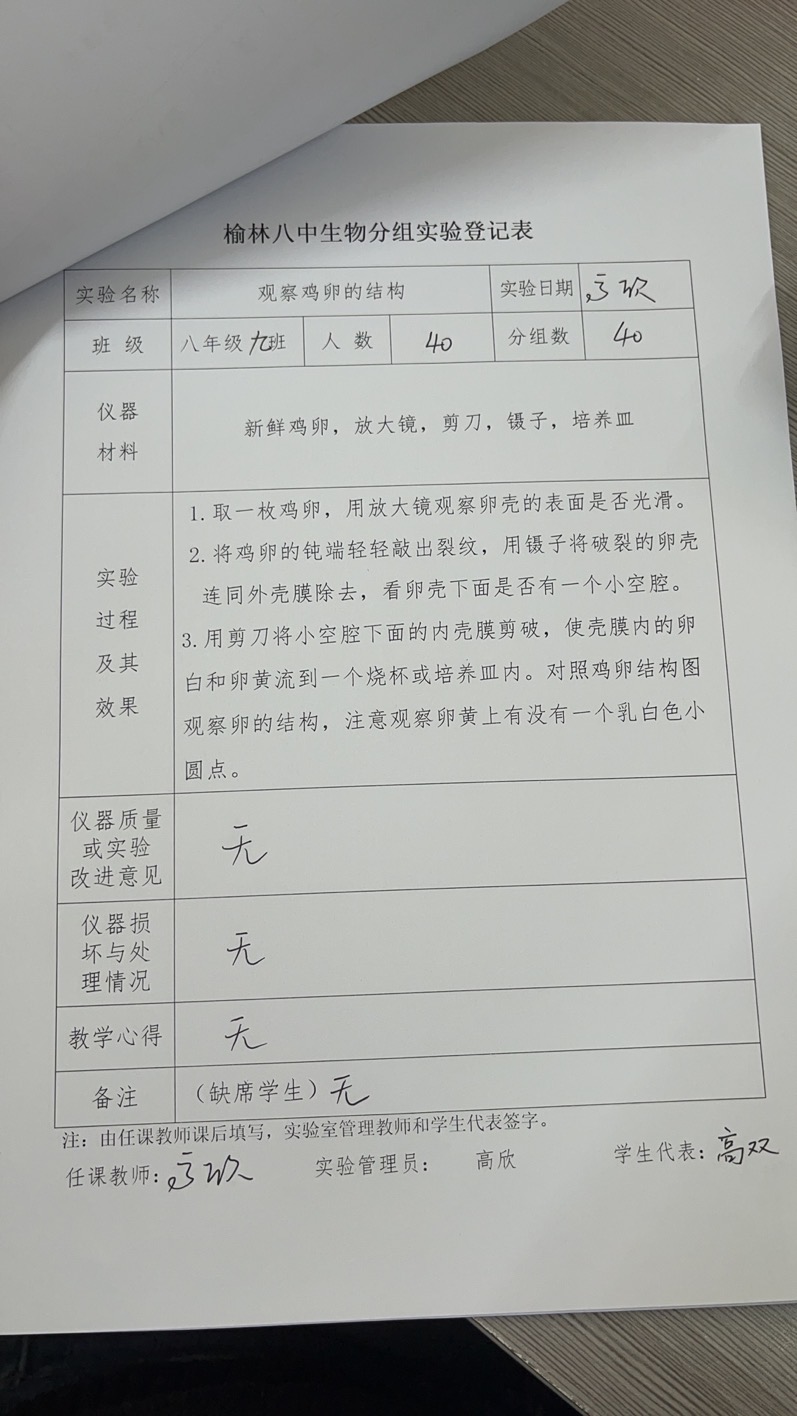 榆林八中生物分组实验登记表
实验名称 观察鸡卵的结构 实验日期 高欣
班 级 八年级九班 人 数 40 分组数 40
仪器
材料
新鲜鸡卵，放大镜，剪刀，镊子，培养皿
实验
过程
及其
效果
1.取一枚鸡卵，用放大镜观察卵壳的表面是否光滑。
2.将鸡卵的钝端轻轻敲出裂纹，用镊子将破裂的卵壳
连同外壳膜除去，看卵壳下面是否有一个小空腔。
3.用剪刀将小空腔下面的内壳膜剪破，使壳膜内的卵
白和卵黄流到一个烧杯或培养皿内。对照鸡卵结构图
观察卵的结构，注意观察卵黄上有没有一个乳白色小
圆点。
仪器质量
或实验
改进意见
无
仪器损
坏与处
理情况
无
教学心得 无
备注 （缺席学生）无
注：由任课教师课后填写，实验室管理教师和学生代表签字。
任课教师：高欣 实验管理员： 高欣 学生代表：高双